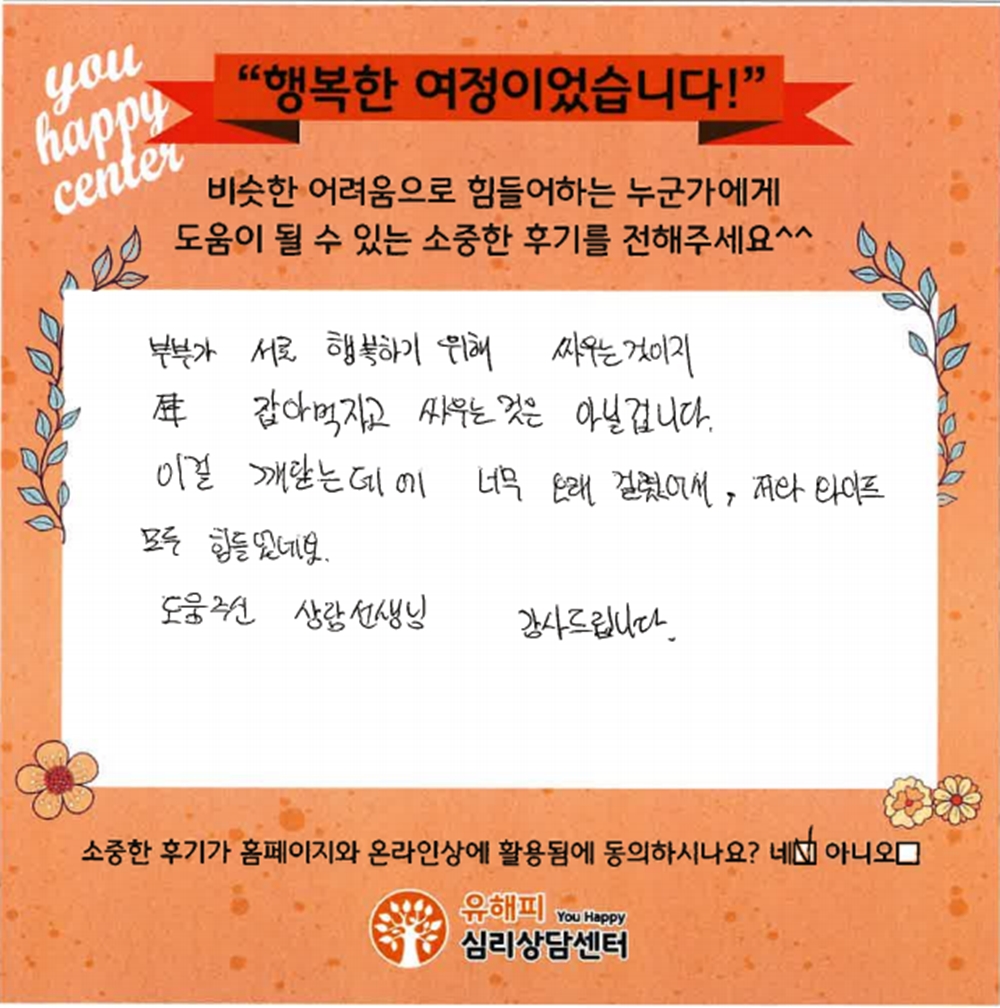 you
happy
center
“행복한 여정이었습니다!”
비슷한 어려움으로 힘들어하는 누군가에게
도움이 될 수 있는 소중한 후기를 전해주세요^^
부부가 서로 행복하기 위해 싸우는것이지
잡아먹자고 싸우는 것은 아닐겁니다.
이걸 깨닫는데에 너무 오래 걸렸어서, 저와 와이프
모두 힘들었네요.
도움주신 상담선생님 감사드립니다.
소중한 후기가 홈페이지와 온라인상에 활용됨에 동의하시나요? 네☑ 아니오☐
유해피 You Happy
심리상담센터